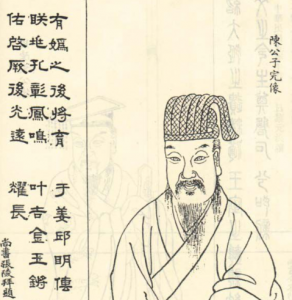 陳公子完像
有媯之後將育于姜邱明傳
孔彰鳳鳴叶吉金玉鏘
佑啓厥後光遠耀長
尚書張拜題